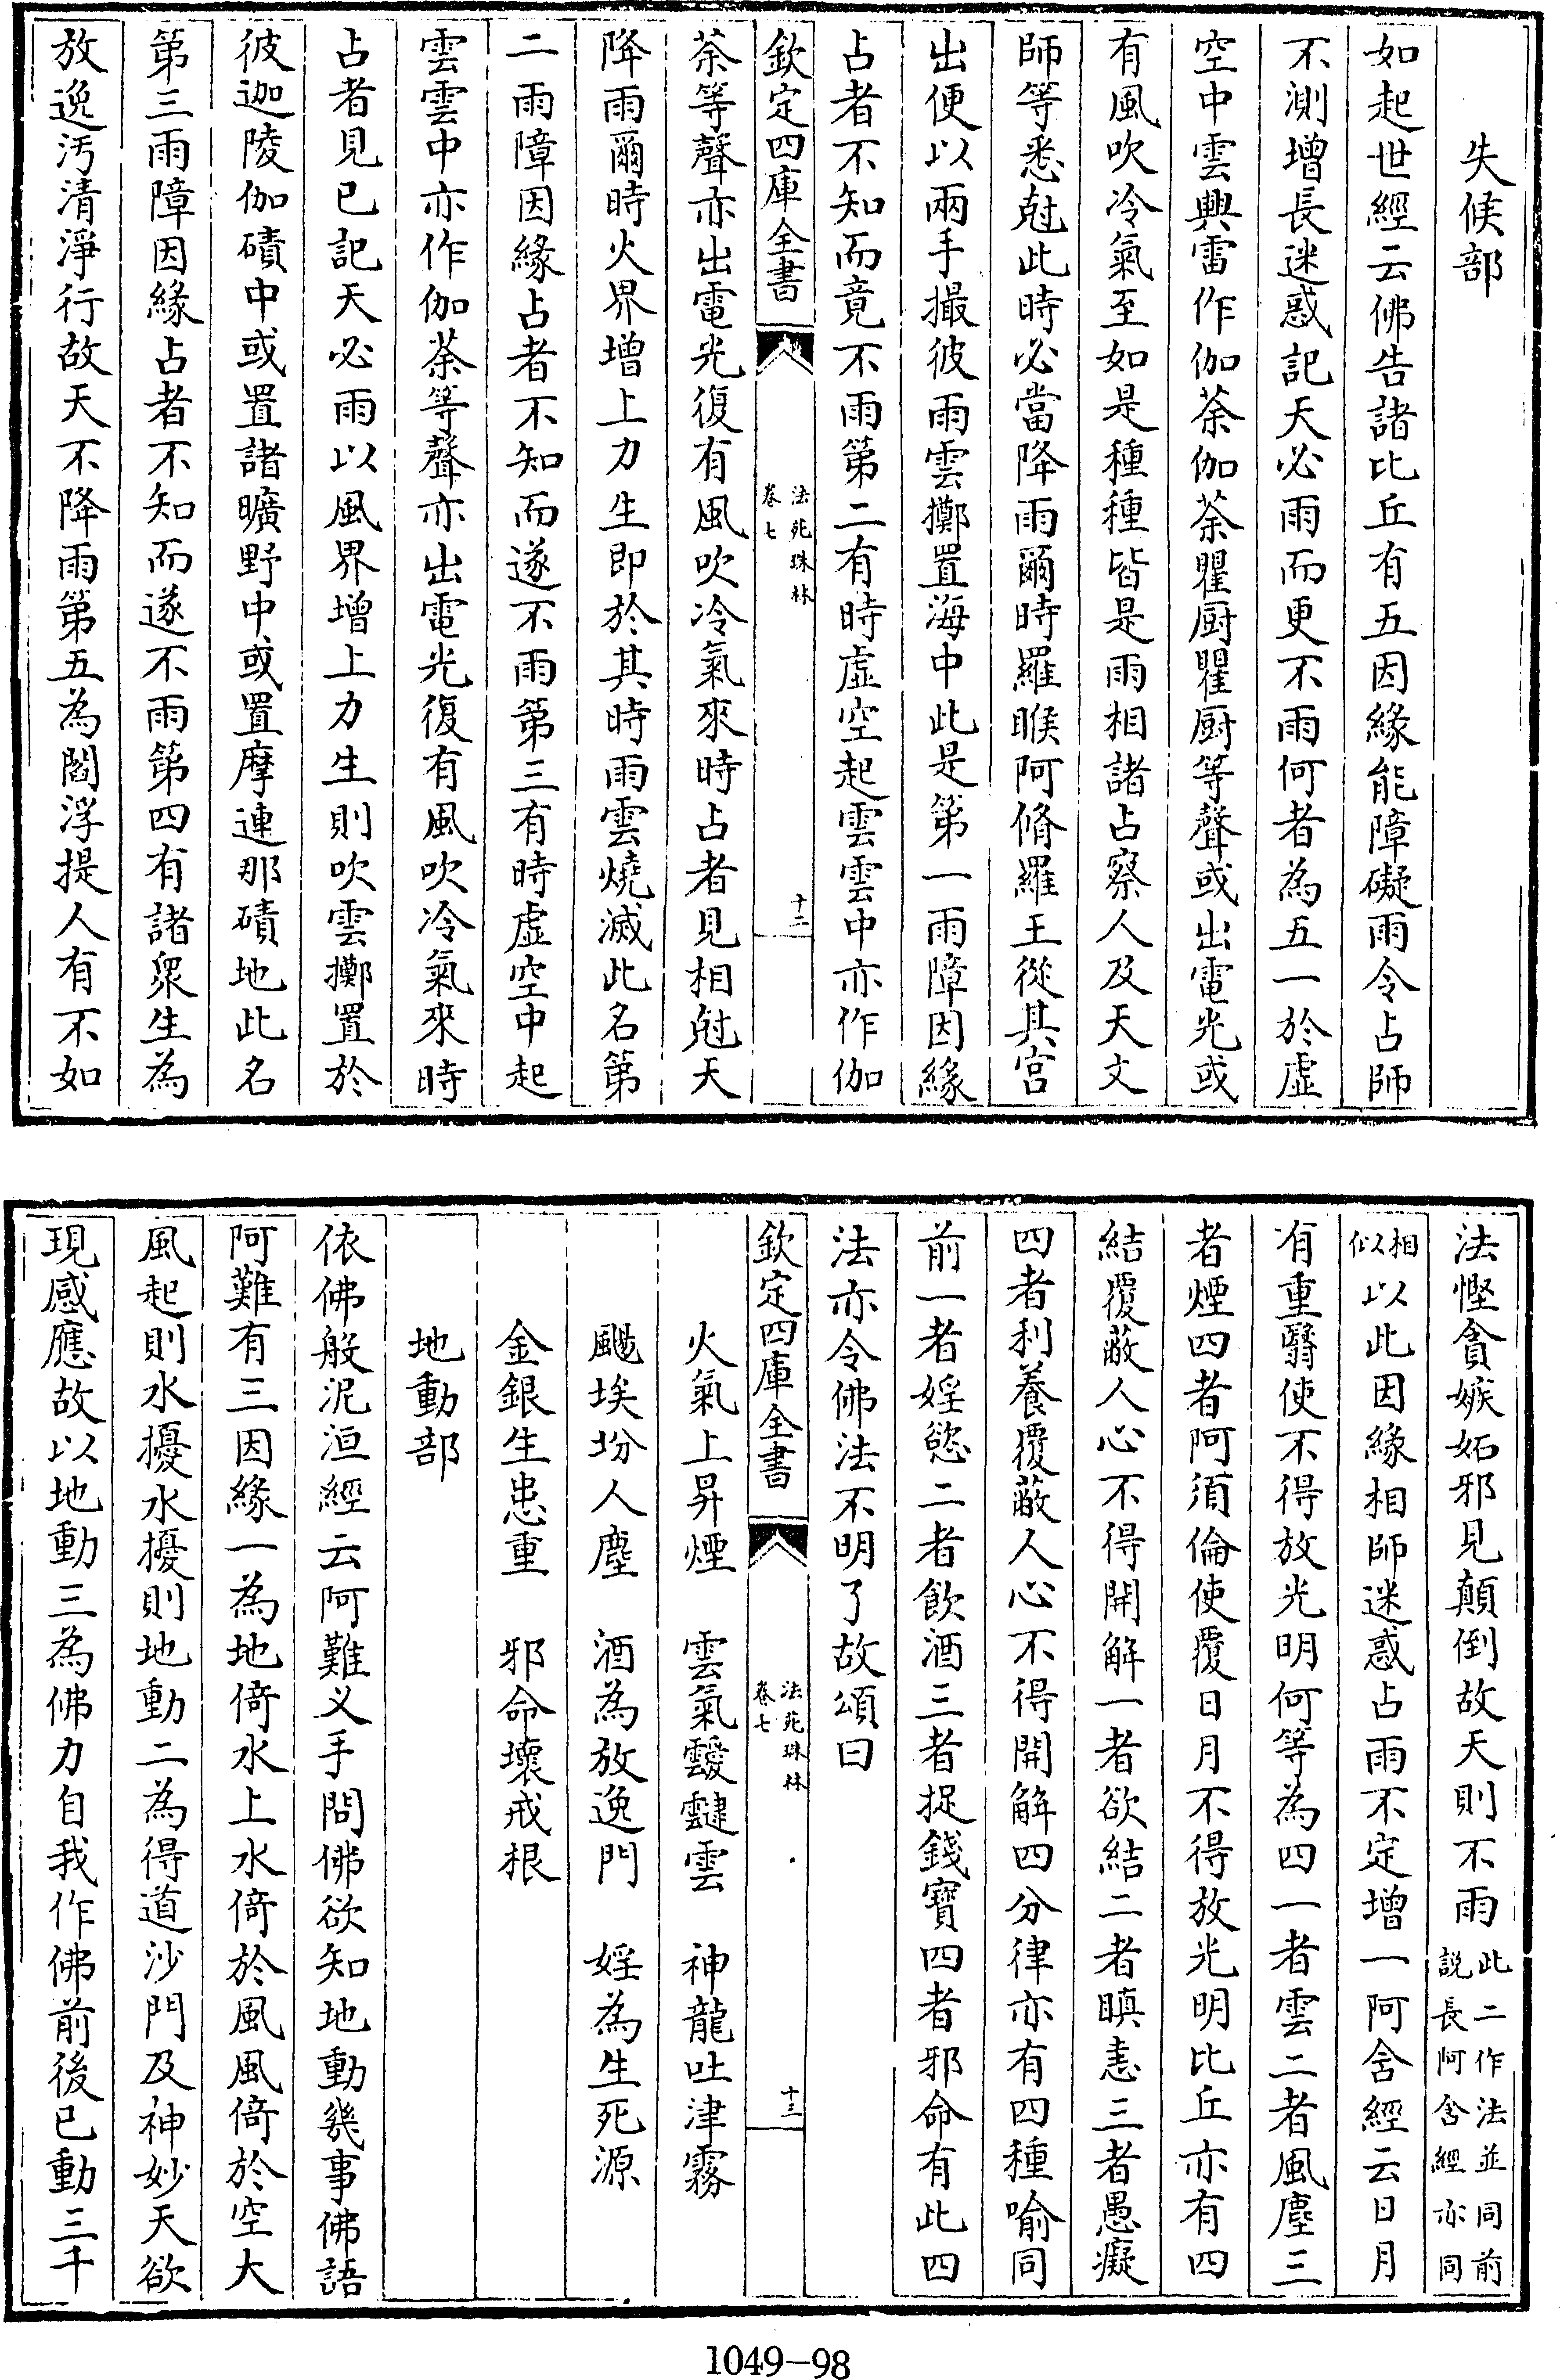 失候部
如起世經云佛告諸比丘有五因緣能障礙雨令占師
不測增長迷惑記天必雨而更不雨何者為五一於虛
空中雲興雷作伽荼伽荼瞿厨瞿厨等聲或出電光或
有風吹冷氣至如是種種皆是雨相諸占察人及天文
師等悉尅此時必當降雨爾時羅睺阿脩羅王從其宮
出便以兩手撮彼雨雲擲置海中此是第一雨障因緣
占者不知而竟不雨第二有時虛空起雲雲中亦作伽
欽定四庫全書
法苑珠林
卷七
十二
荼等聲亦出電光復有風吹冷氣來時占者見相尅天
降雨爾時火界增上力生即於其時雨雲燒滅此名第
二雨障因緣占者不知而遂不雨第三有時虛空中起
雲雲中亦作伽荼等聲亦出電光復有風吹冷氣來時
占者見已記天必雨以風界增上力生則吹雲擲置於
彼迦陵伽磧中或置諸曠野中或置摩連那磧地此名
第三雨障因緣占者不知而遂不雨第四有諸衆生為
放逸汚清淨行故天不降雨第五為閻浮提人有不如
法慳貪嫉妬邪見顛倒故天則不雨此二作法並同前
說長阿含經亦同
相似以此因緣相師迷惑占雨不定增一阿含經云日月
有重翳使不得放光明何等為四一者雲二者風塵三
者煙四者阿須倫使覆日月不得放光明比丘亦有四
結覆蔽人心不得開解一者欲結二者瞋恚三者愚癡
四者利養覆蔽人心不得開解四分律亦有四種喻同
前一者婬慾二者飲酒三者捉錢寶四者邪命有此四
法亦令佛法不明了故頌曰
欽定四庫全書
法苑珠林
卷七
十三
火氣上昇煙　雲氣靉靆雲　神龍吐津霧
颺埃坋人塵　酒為放逸門　婬為生死源
金銀生患重　邪命壞戒根
地動部
依佛般泥洹經云阿難义手問佛欲知地動幾事佛語
阿難有三因緣一為地倚水上水倚於風風倚於空大
風起則水擾水擾則地動二為得道沙門及神妙天欲
現感應故以地動三為佛力自我作佛前後已動三千
1049-98